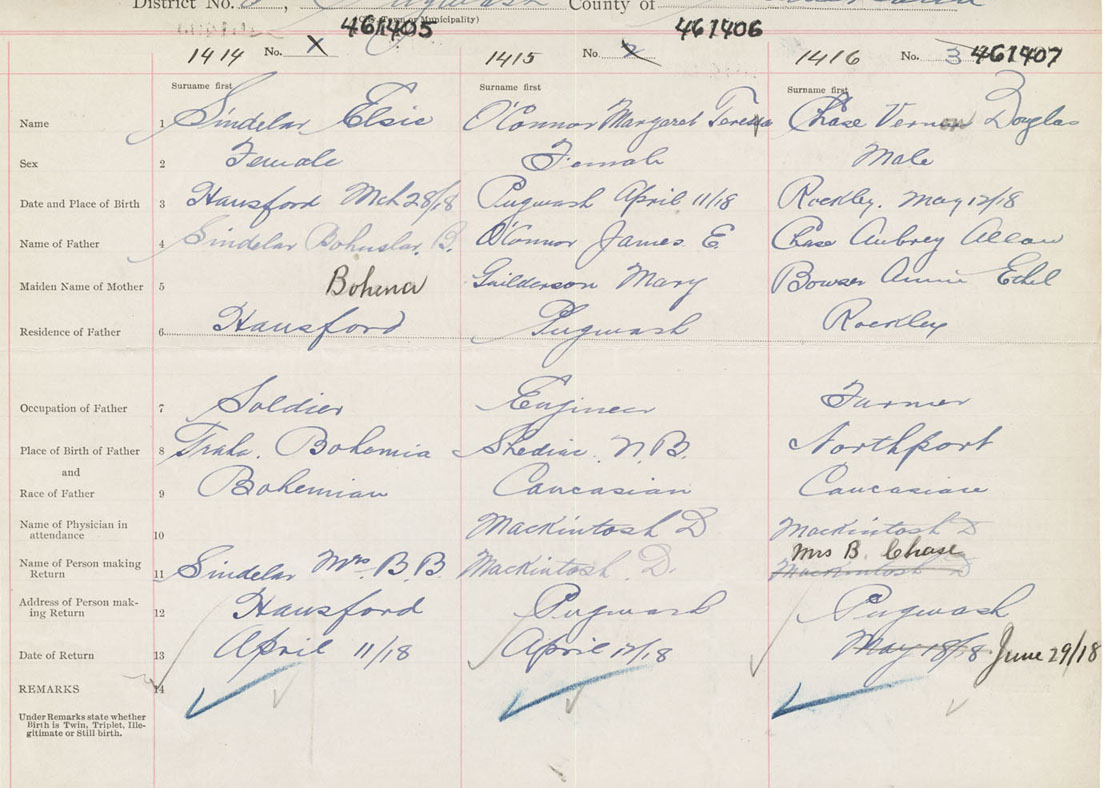 District No. Pugwash County of
(City, Town or Municipality)
461405 461406
1414 No. X 1415 No. 2 1416 No. 3 461407
Surname first Surname first Surname first
Name 1 Sindelar Elsie O'Connor Margaret Teresa Chase Vernon Douglas
Sex 2 Female Female Male
Date and Place of Birth 3 Hansford Mch 28/18 Pugwash April 11/18 Rockley. May 12/18
Name of Father 4 Sindelar Bohuslav. B. O'Connor James E Chase Aubrey Allan
Maiden Name of Mother 5 Mary Bowser Annie Ethel
Residence of Father 6 Hansford Pugwash Rockley
Occupation of Father 7 Soldier Engineer Farmer
Place of Birth of Father 8 Bohemia Shediac N.B. Northport
and
Race of Father 9 Bohemian Caucasian Caucasian
Name of Physician in
attendance 10 Mackintosh D Mackintosh D
Mrs B. Chase
Name of Person making
Return 11 Sindelar Mrs. B B. Mackintosh D. Mackintosh D
Address of Person mak-
ing Return 12 Hansford Pugwash Pugwash
Date of Return 13 April 11/18 April 12/18 May 18/18 June 29/18
REMARKS 14
Under Remarks state whether
Birth is Twin, Triplet, Ille-
gitimate or Still birth.